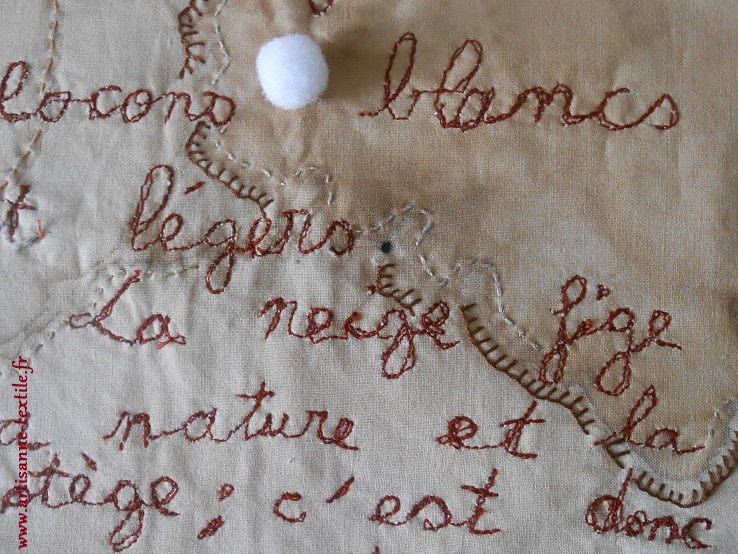 locons blancs
t légers
La neige fige
a nature et la
otège ; c'est donc
www.artisanne-textile.fr